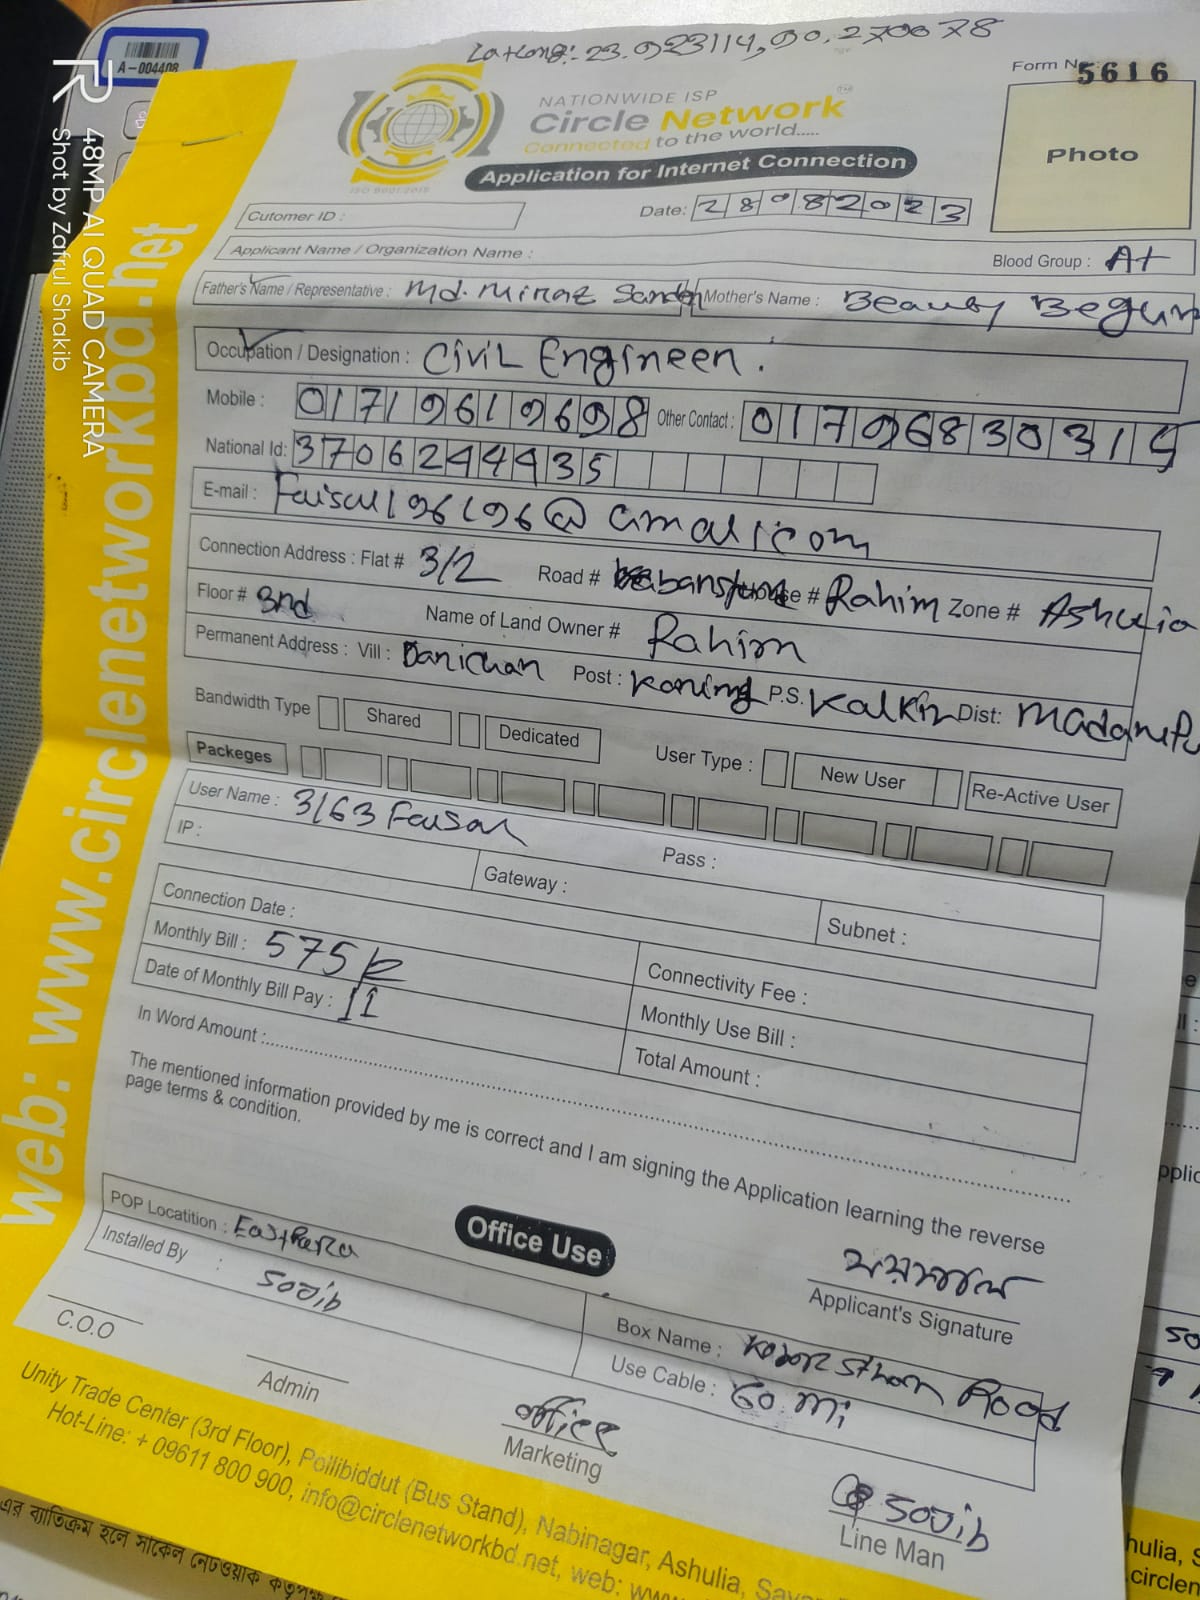 Lat Long:- 23.923114, 90.270078
A-004408
Form No : 5616
NATIONWIDE ISP
Circle Network
Connected to the world.....
ISO 9001:2015
Application for Internet Connection
Photo
Cutomer ID :
Date: 28082023
Applicant Name / Organization Name :
Blood Group : A+
Father's Name / Representative : Md. Miraz Sarder
Mother's Name : Beauty Begum
Occupation / Designation : Civil Engineer.
Mobile : 01719619698 Other Contact : 01796830315
National Id: 3706244435
E-mail : Faisal196196@gmail.com
Connection Address : Flat # 3/2 Road # House # Rahim Zone # Ashulia
Floor # 3rd Name of Land Owner # Rahim
Permanent Address : Vill : Danichan Post : P.S. Kalkin Dist: Madaripu
Bandwidth Type Shared Dedicated User Type : New User Re-Active User
Packeges
User Name : 3163 Faisal Pass :
IP : Gateway : Subnet :
Connection Date :
Monthly Bill : 575 Connectivity Fee :
Date of Monthly Bill Pay : 11 Monthly Use Bill :
Total Amount :
In Word Amount :
The mentioned information provided by me is correct and I am signing the Application learning the reverse
page terms & condition.
Applicant's Signature
Office Use
POP Locatition : EastPara
Installed By : Sojib
Box Name : Road
Use Cable : 60 mi
C.O.O
Admin
office
Marketing
Sojib
Line Man
Unity Trade Center (3rd Floor), Pollibiddut (Bus Stand), Nabinagar, Ashulia, Sava
Hot-Line: + 09611 800 900, info@circlenetworkbd.net, web: www
web: www.circlenetworkbd.net
এর ব্যতিক্রম হলে সার্কেল নেটওয়ার্ক কর্তৃপক্ষ
hulia, S
circlen
48MP AI QUAD CAMERA
Shot by Zafrul Shakib